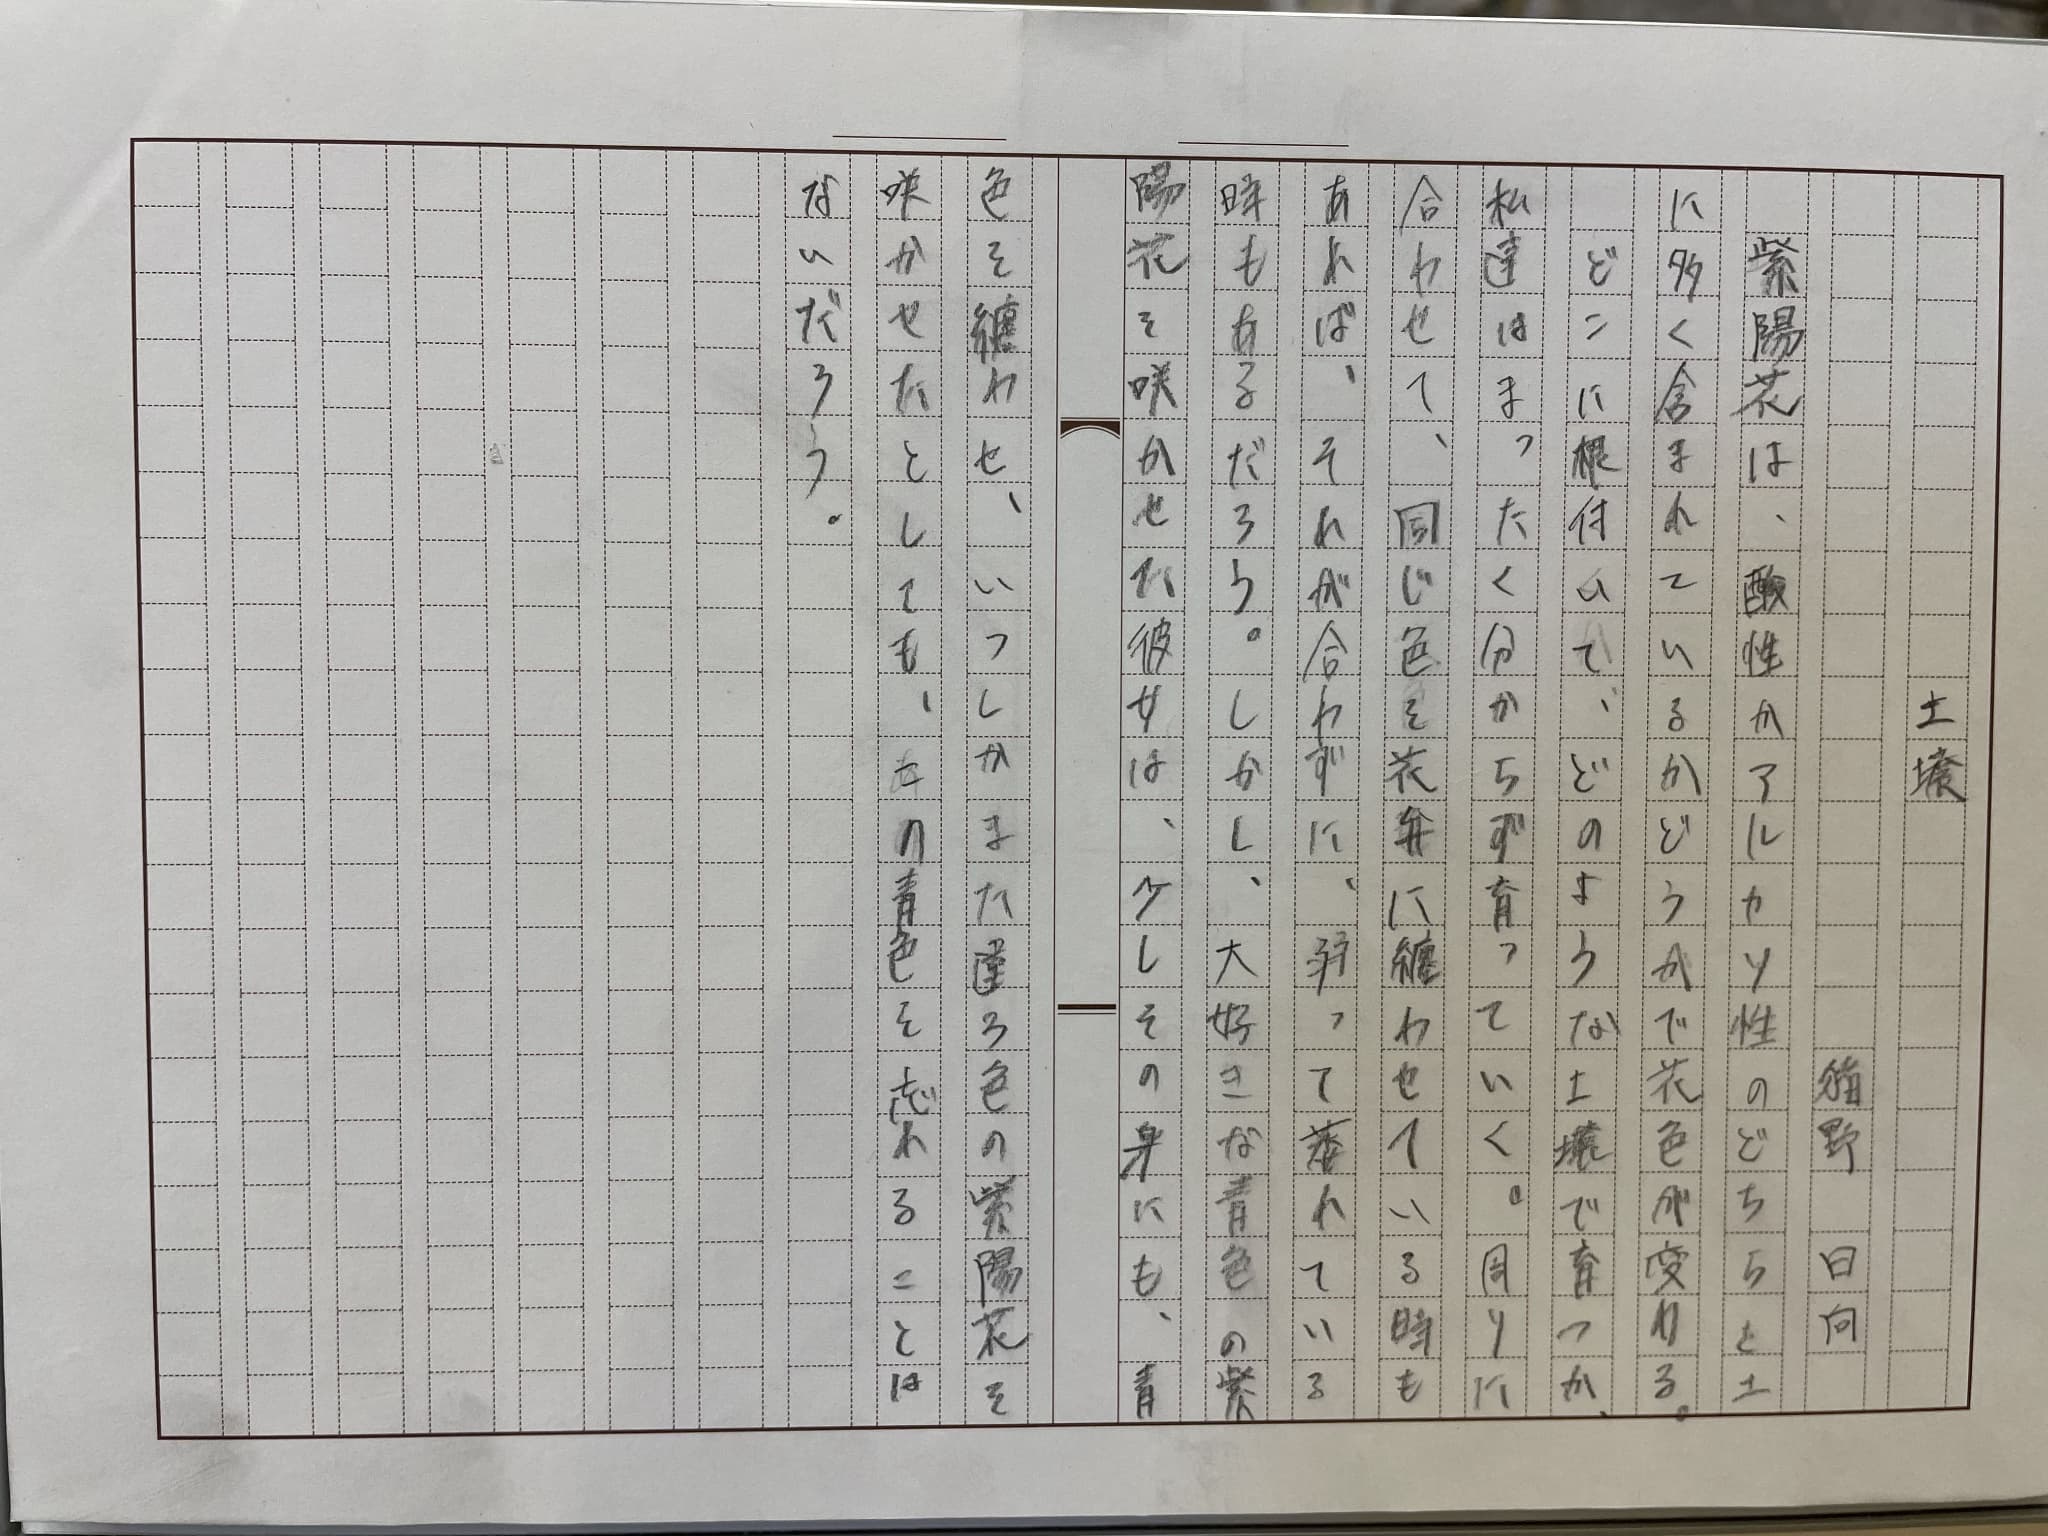 土壌
猫野 日向
紫陽花は、酸性かアルカリ性のどちらと土
に多く含まれているかどうかで花色が変わる。
どこに根付いて、どのような土壌で育つか、
私達はまったく分からず育っていく。周りに
合わせて、同じ色を花弁に纏わせている時も
あれば、それが合わずに、弱って萎れている
時もあるだろう。しかし、大好きな青色の紫
陽花を咲かせた彼女は、少しその身にも、青
色を纏わせ、いつしかまた違う色の紫陽花を
咲かせたとしても、あの青色を忘れることは
ないだろう。